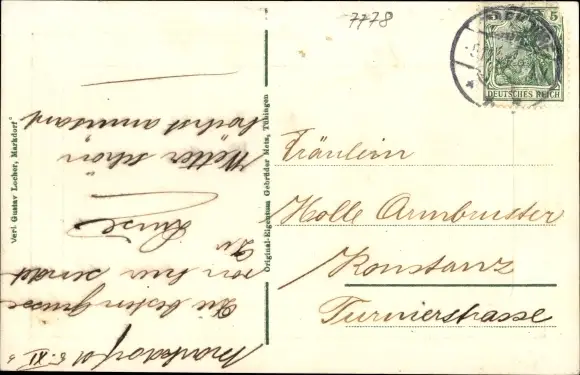 7778
5
DEUTSCHES REICH
Verl. Gustav Locher, Markdorf
Original-Eigentum Gebrüder Metz, Tübingen
Fräulein
Holle Armbruster
Konstanz
Turnierstrasse
Markdorf d 5. XI.
Die besten Grüsse
von hier sendet
Dir
Luise
Wetter schön
höchst amüsant